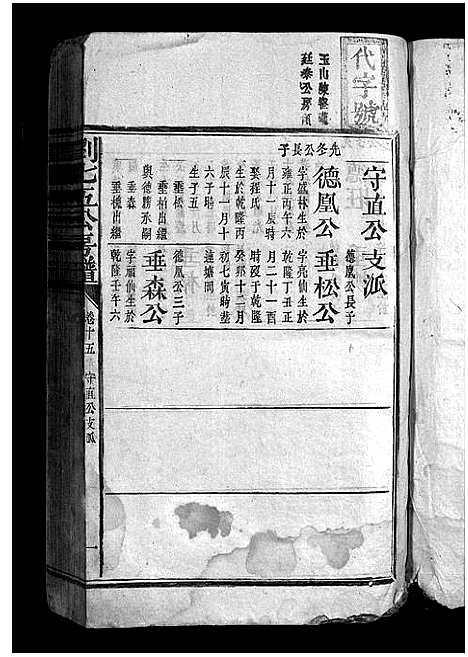 代字號
玉山陳
廷泰公房領
守直公支派
先冬公長子
德凰公
字盛林生於
雍正丙午六
月十一辰時
娶程氏
生於乾隆丙
辰十一月十
六子時
生子五
垂松
垂柏出繼
與德勝承嗣
垂森
垂槐出繼
德凰公長子
垂松公
字亮仙生於
乾隆丁丑正
月二十一酉
時歿于乾隆
癸卯十二月
初七寅時塟
連塘間
德凰公三子
垂森公
字福仙生於
乾隆壬午六
劉七五公房譜
卷十五
守直公支派
一